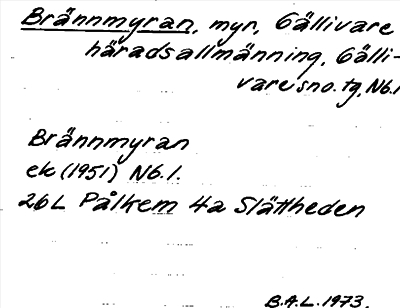 Brännmyran, myr, Gällivare
häradsallmänning, Gälli-
vare sno. tg, Nb.
Brännmyran
ek (1951) Nb.1.
26L Pålkem 4a Slättheden
B.A.L. 1973.